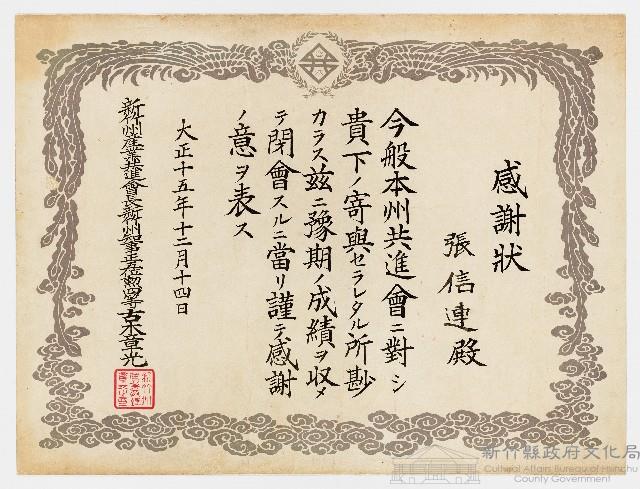 感謝狀
張信連殿
今般本州共進會ニ對シ
貴下ノ寄與セラレタル所尠
カラス玆ニ豫期ノ成績ヲ收メ
テ閉會スルニ當リ謹テ感謝
ノ意ヲ表ス
大正十五年十二月十四日
新竹州產業共進會會長新竹州知事正五位勲四等古木章光
新竹縣政府文化局
Cultural Affairs Bureau of Hsinchu
County Government